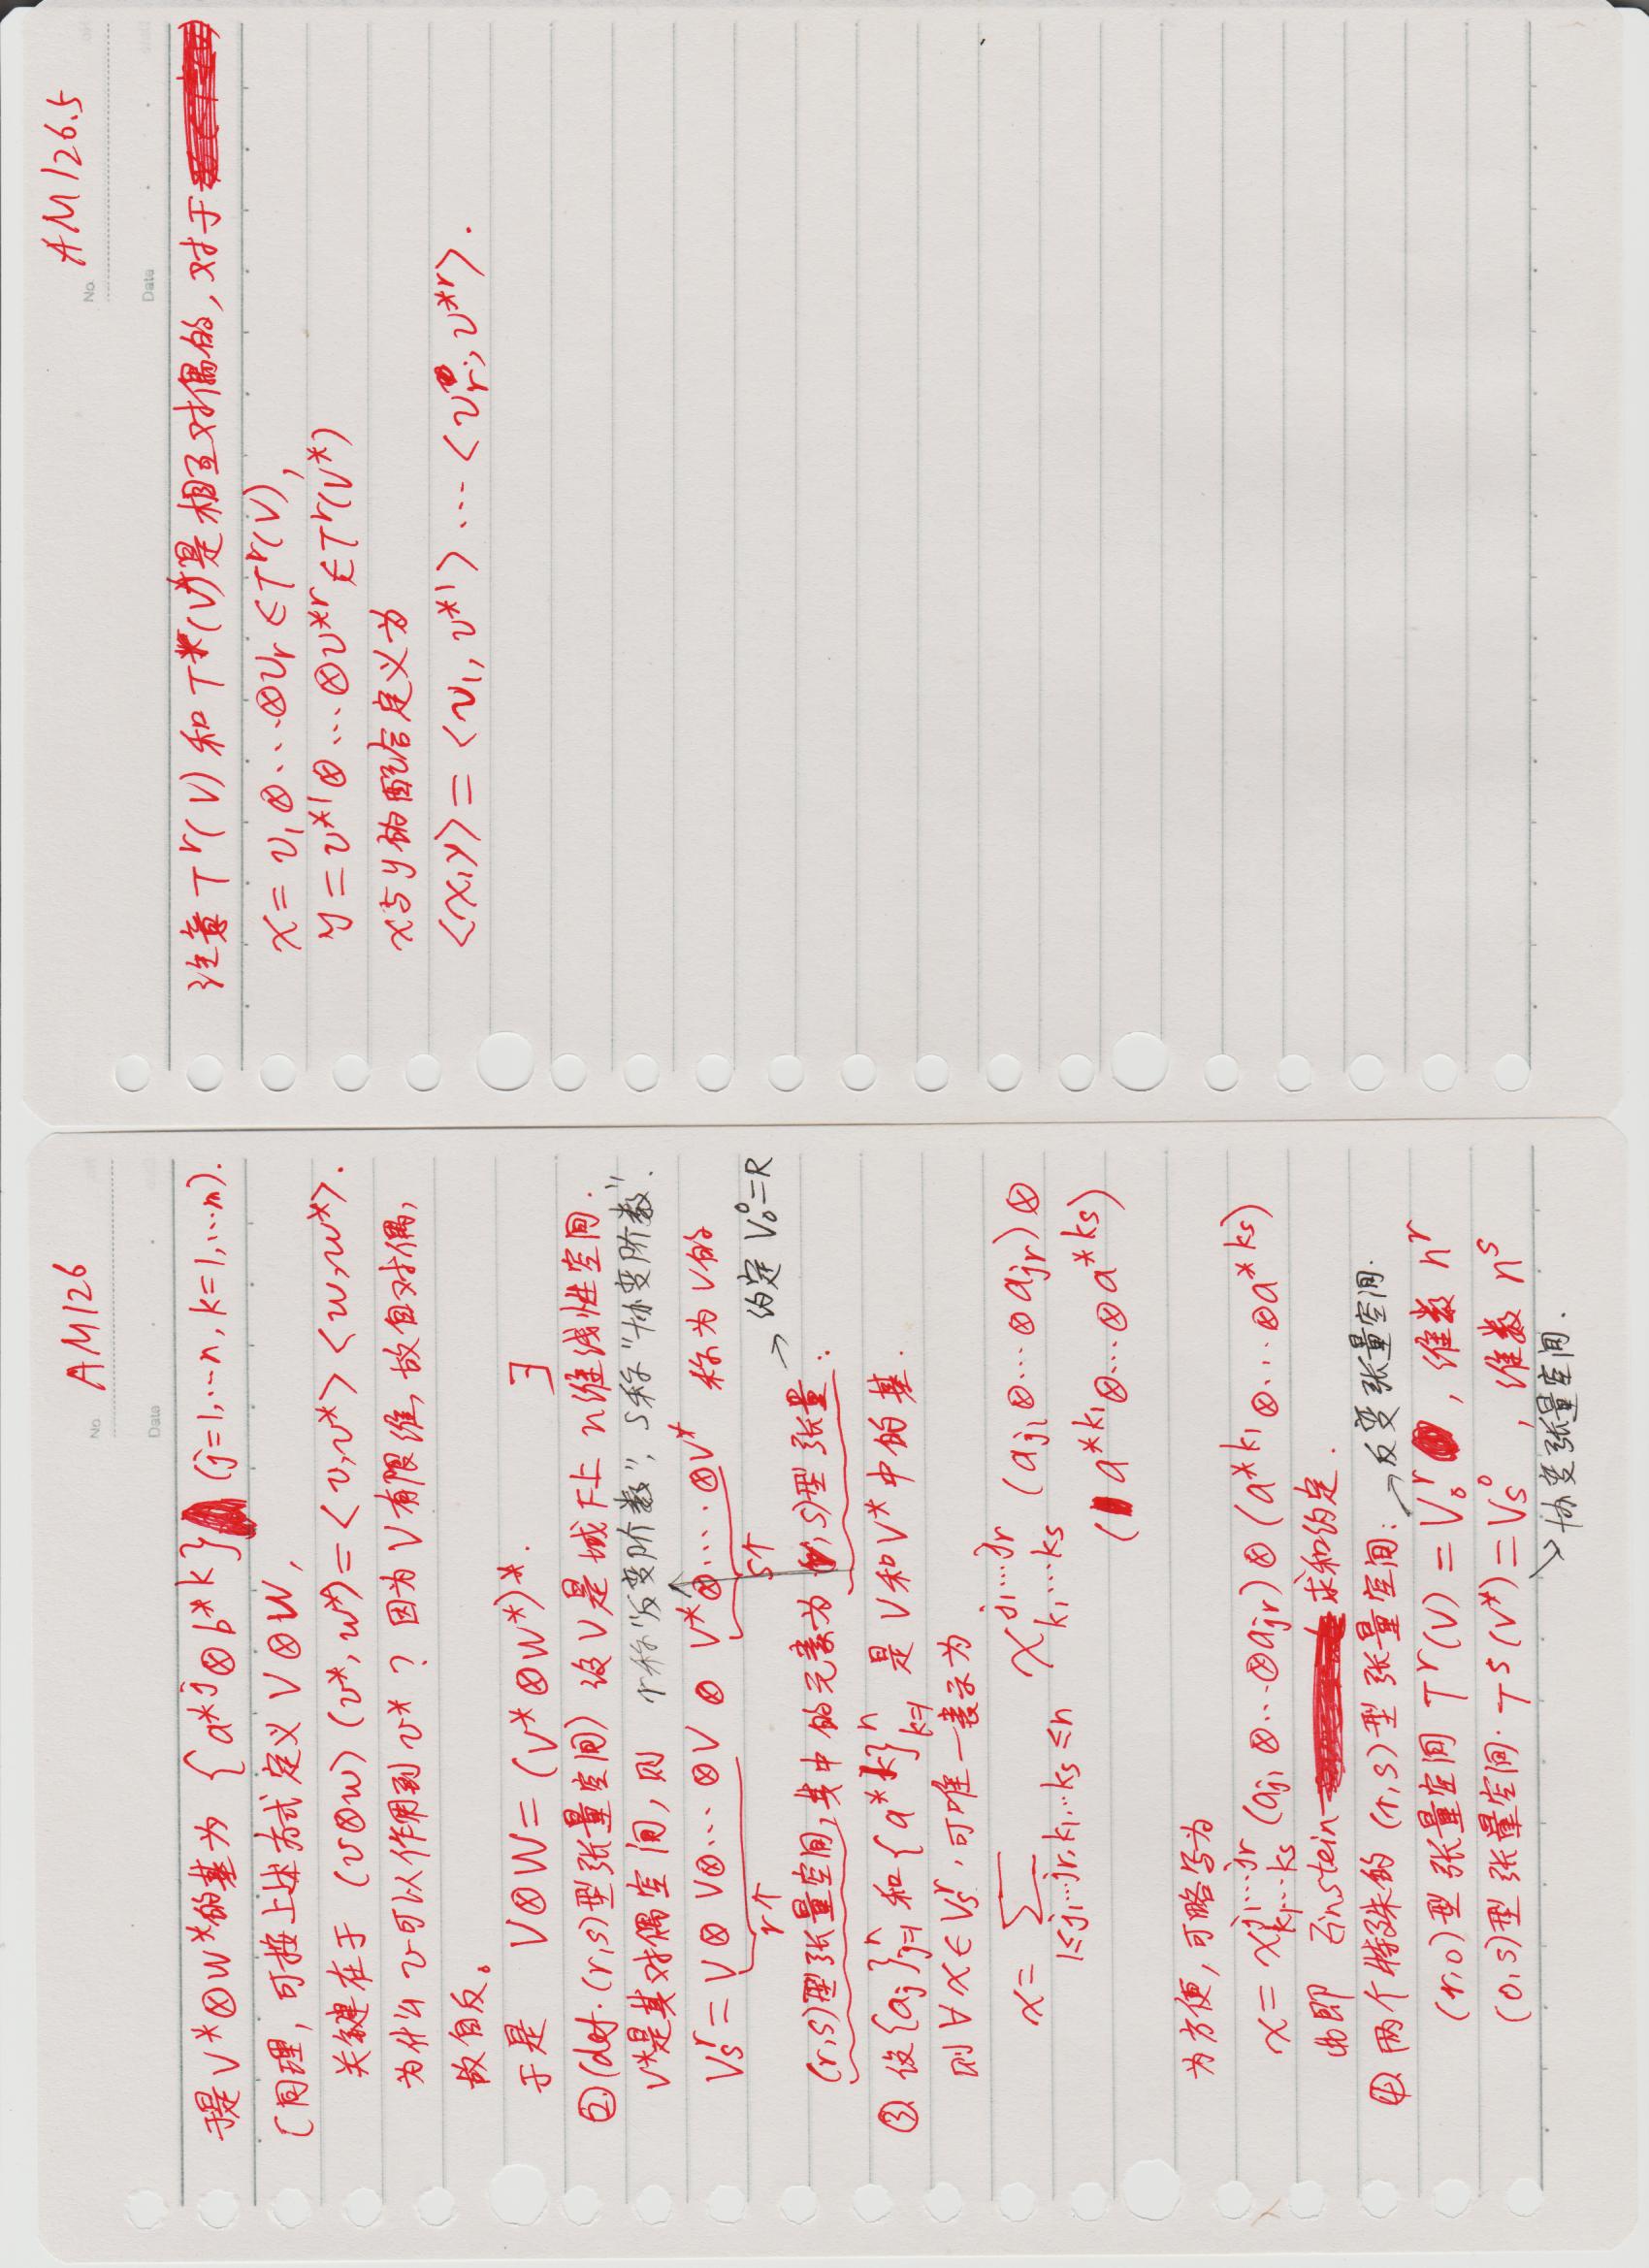 No. AM126
Date
于是 V*⊗W*的基为 {a*ʲ⊗b*ᵏ} (j=1,…n, k=1,…m).
[同理,可按上述方式定义 V⊗W,
关键在于 (v⊗w)(v*,w*)=<v,v*><w,w*>.
为什么 v可以作用到 v*?因为V有限维,故自对偶,
故自反。
于是 V⊗W=(V*⊗W*)*. ]
②(def.(r,s)型张量空间) 设V是域F上 n维线性空间.
V*是其对偶空间,则 r称"反变阶数", s称"协变阶数".
Vₛʳ=V⊗V⊗…⊗V⊗V*⊗….⊗V* 称为V的
r个 s个 → 约定 V₀⁰=R
(r,s)型张量空间,其中的元素为(r,s)型张量.
③ 设{aⱼ}ⁿⱼ₌₁和{a*ᵏ}ⁿₖ₌₁ 是V和V*中的基.
则∀x∈Vₛʳ,可唯一表示为
x=∑_{1≤j₁…jᵣ,k₁…kₛ≤n} x^{j₁…jᵣ}_{k₁…kₛ} (a_{j₁}⊗…⊗a_{jᵣ})⊗
(a^{*k₁}⊗…⊗a^{*kₛ})
为方便,可略写为
x=x^{j₁…jᵣ}_{k₁…kₛ}(a_{j₁}⊗…⊗a_{jᵣ})⊗(a^{*k₁}⊗…⊗a^{*kₛ})
此即 Einstein 求和约定.
④ 两个特殊的 (r,s)型张量空间: →反变张量空间.
(r,0)型张量空间 Tʳ(V)=V₀ʳ,维数 nʳ
(0,s)型张量空间. Tˢ(V*)=Vₛ⁰,维数 nˢ
↘协变张量空间.
No. AM126.5
Date
注意 Tʳ(V) 和 Tʳ(V*)是相互对偶的,对于
x=v₁⊗…⊗vᵣ∈Tʳ(V),
y=v*¹⊗…⊗v*ʳ∈Tʳ(V*)
x与y的配合定义为
<x,y>=<v₁,v*¹>…<vᵣ,v*ʳ>.